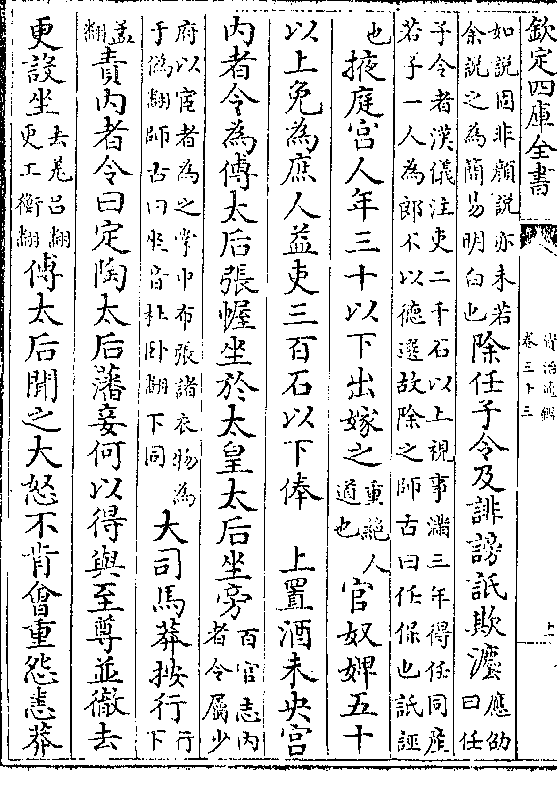 欽定四庫全書
資治通鑑
卷三十三
如說固非顏說亦未若
余說之為簡易明白也
除任子令及誹謗詆欺灋
應劭
曰任
子令者漢儀注吏二千石以上視事滿三年得任同產
若子一人為郎不以德選故除之師古曰任保也詆誣
也
掖庭宮人年三十以下出嫁之
重絕人
道也
官奴婢五十
以上免為庶人益吏三百石以下俸　上置酒未央宮
內者令為傅太后張幄坐於太皇太后坐旁
百官志內
者令屬少
府以宦者為之掌中布張諸衣物為
于偽翻師古曰坐音材卧翻下同
大司馬莽按行
行
下
孟
翻
責內者令曰定陶太后藩妾何以得與至尊並徹去
更設坐
去羌呂翻
更工衡翻
傅太后聞之大怒不肯會重怨恚莽